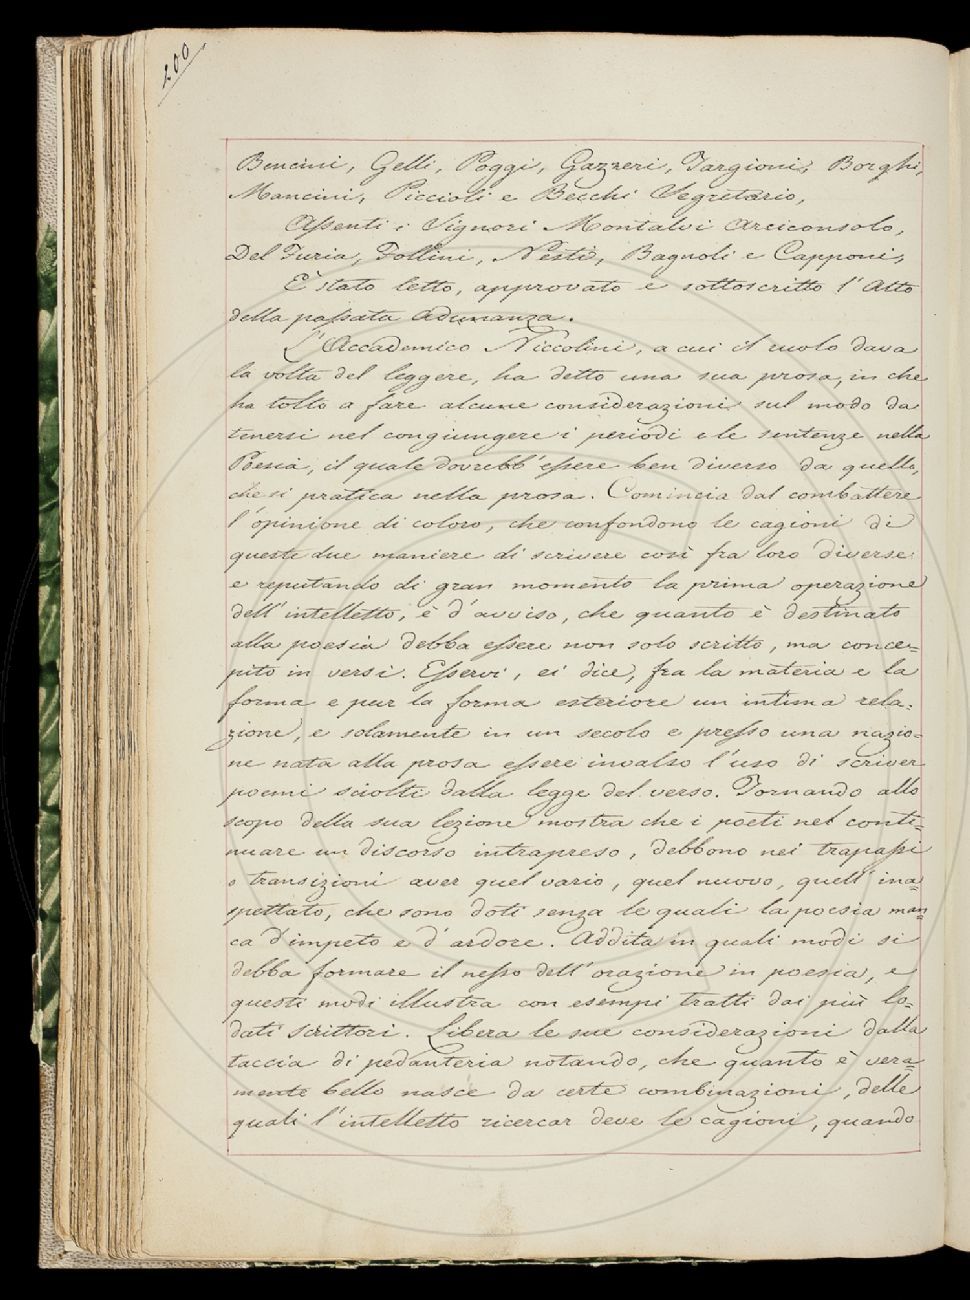 200
Bencini, Gelli, Poggi, Gazzeri, Targioni, Borghi,
Mancini, Piccioli e Becchi Segretario,
Assenti i Signori Montalvi Arciconsolo,
Del Furia, Follini, Nesti, Bagnoli e Capponi,
È stato letto, approvato e sottoscritto l'Atto
della passata Adunanza.
L'Accademico Niccolini, a cui il ruolo dava
la volta del leggere, ha detto una sua prosa, in che
ha tolto a fare alcune considerazioni sul modo da
tenersi nel congiungere i periodi e le sentenze nella
Poesia, il quale dovrebb'essere ben diverso da quello,
che si pratica nella prosa. Comincia dal combattere
l'opinione di coloro, che confondono le cagioni di
queste due maniere di scrivere così fra loro diverse
e reputando di gran momento la prima operazione
dell'intelletto, è d'avviso, che quanto è destinato
alla poesia debba essere non solo scritto, ma conce=
pito in versi. Esservi, ei dice, fra la materia e la
forma e pur la forma esteriore un intima rela=
zione, e solamente in un secolo e presso una nazio=
ne nata alla prosa essere invalso l'uso di scriver
poemi sciolti dalla legge del verso. Tornando allo
scopo della sua lezione mostra che i poeti nel conti=
nuare un discorso intrapreso, debbono nei trapassi
o transizioni aver quel vario, quel nuovo, quell'ina=
spettato, che sono doti senza le quali la poesia man=
ca d'impeto e d'ardore. Addita in quali modi si
debba formare il nesso dell'orazione in poesia, e
questi modi illustra con esempi tratti dai più lo=
dati scrittori. Libera le sue considerazioni dalla
taccia di pedanteria notando, che quanto è vera=
mente bello nasce da certe combinazioni, delle
quali l'intelletto ricercar deve le cagioni, quando